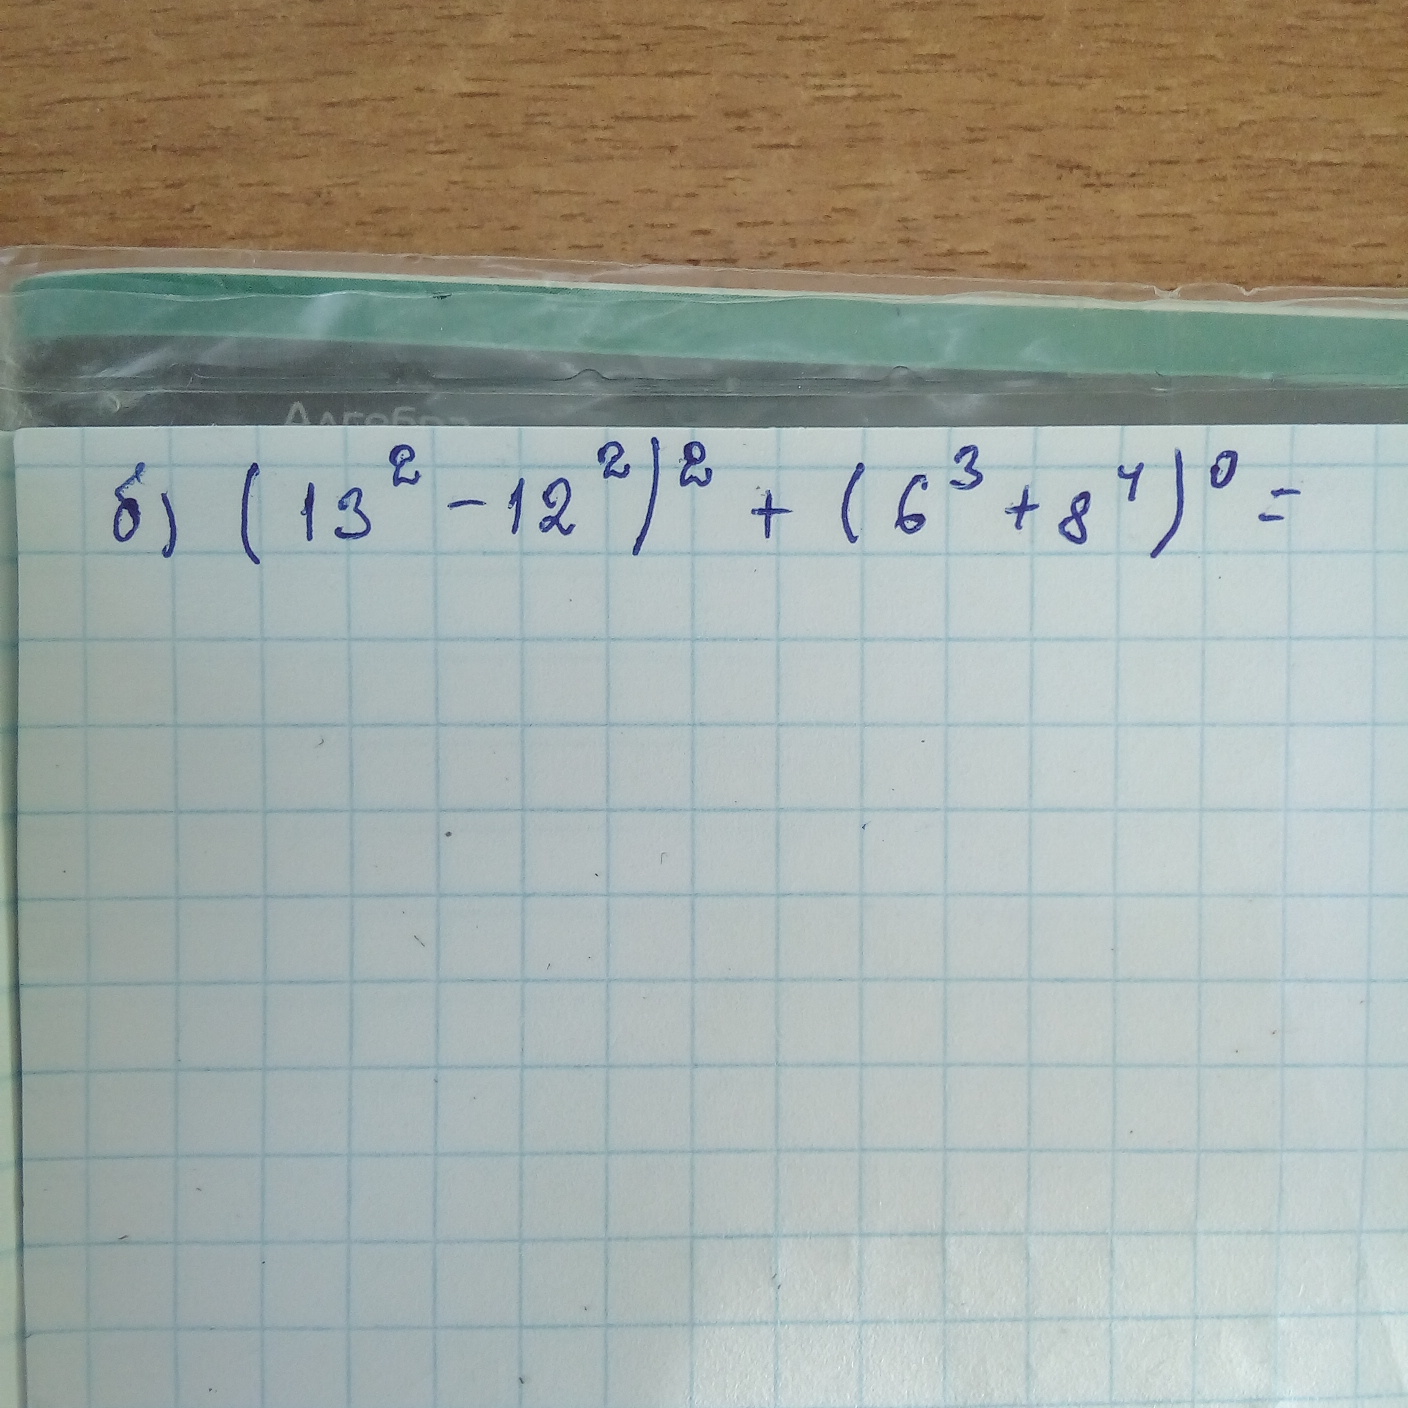 Алгебра
б) (13² - 12²)² + (6³ + 8⁴)⁰ =